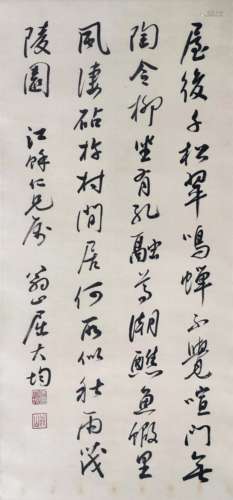 屋後千松翠鳴蟬不覺喧門無
陶令柳坐有孔融尊潮醮魚蝦里
風淒砧杵村閒居何所似秋雨茂
陵園 江餘仁兄屬 翁山屈大均